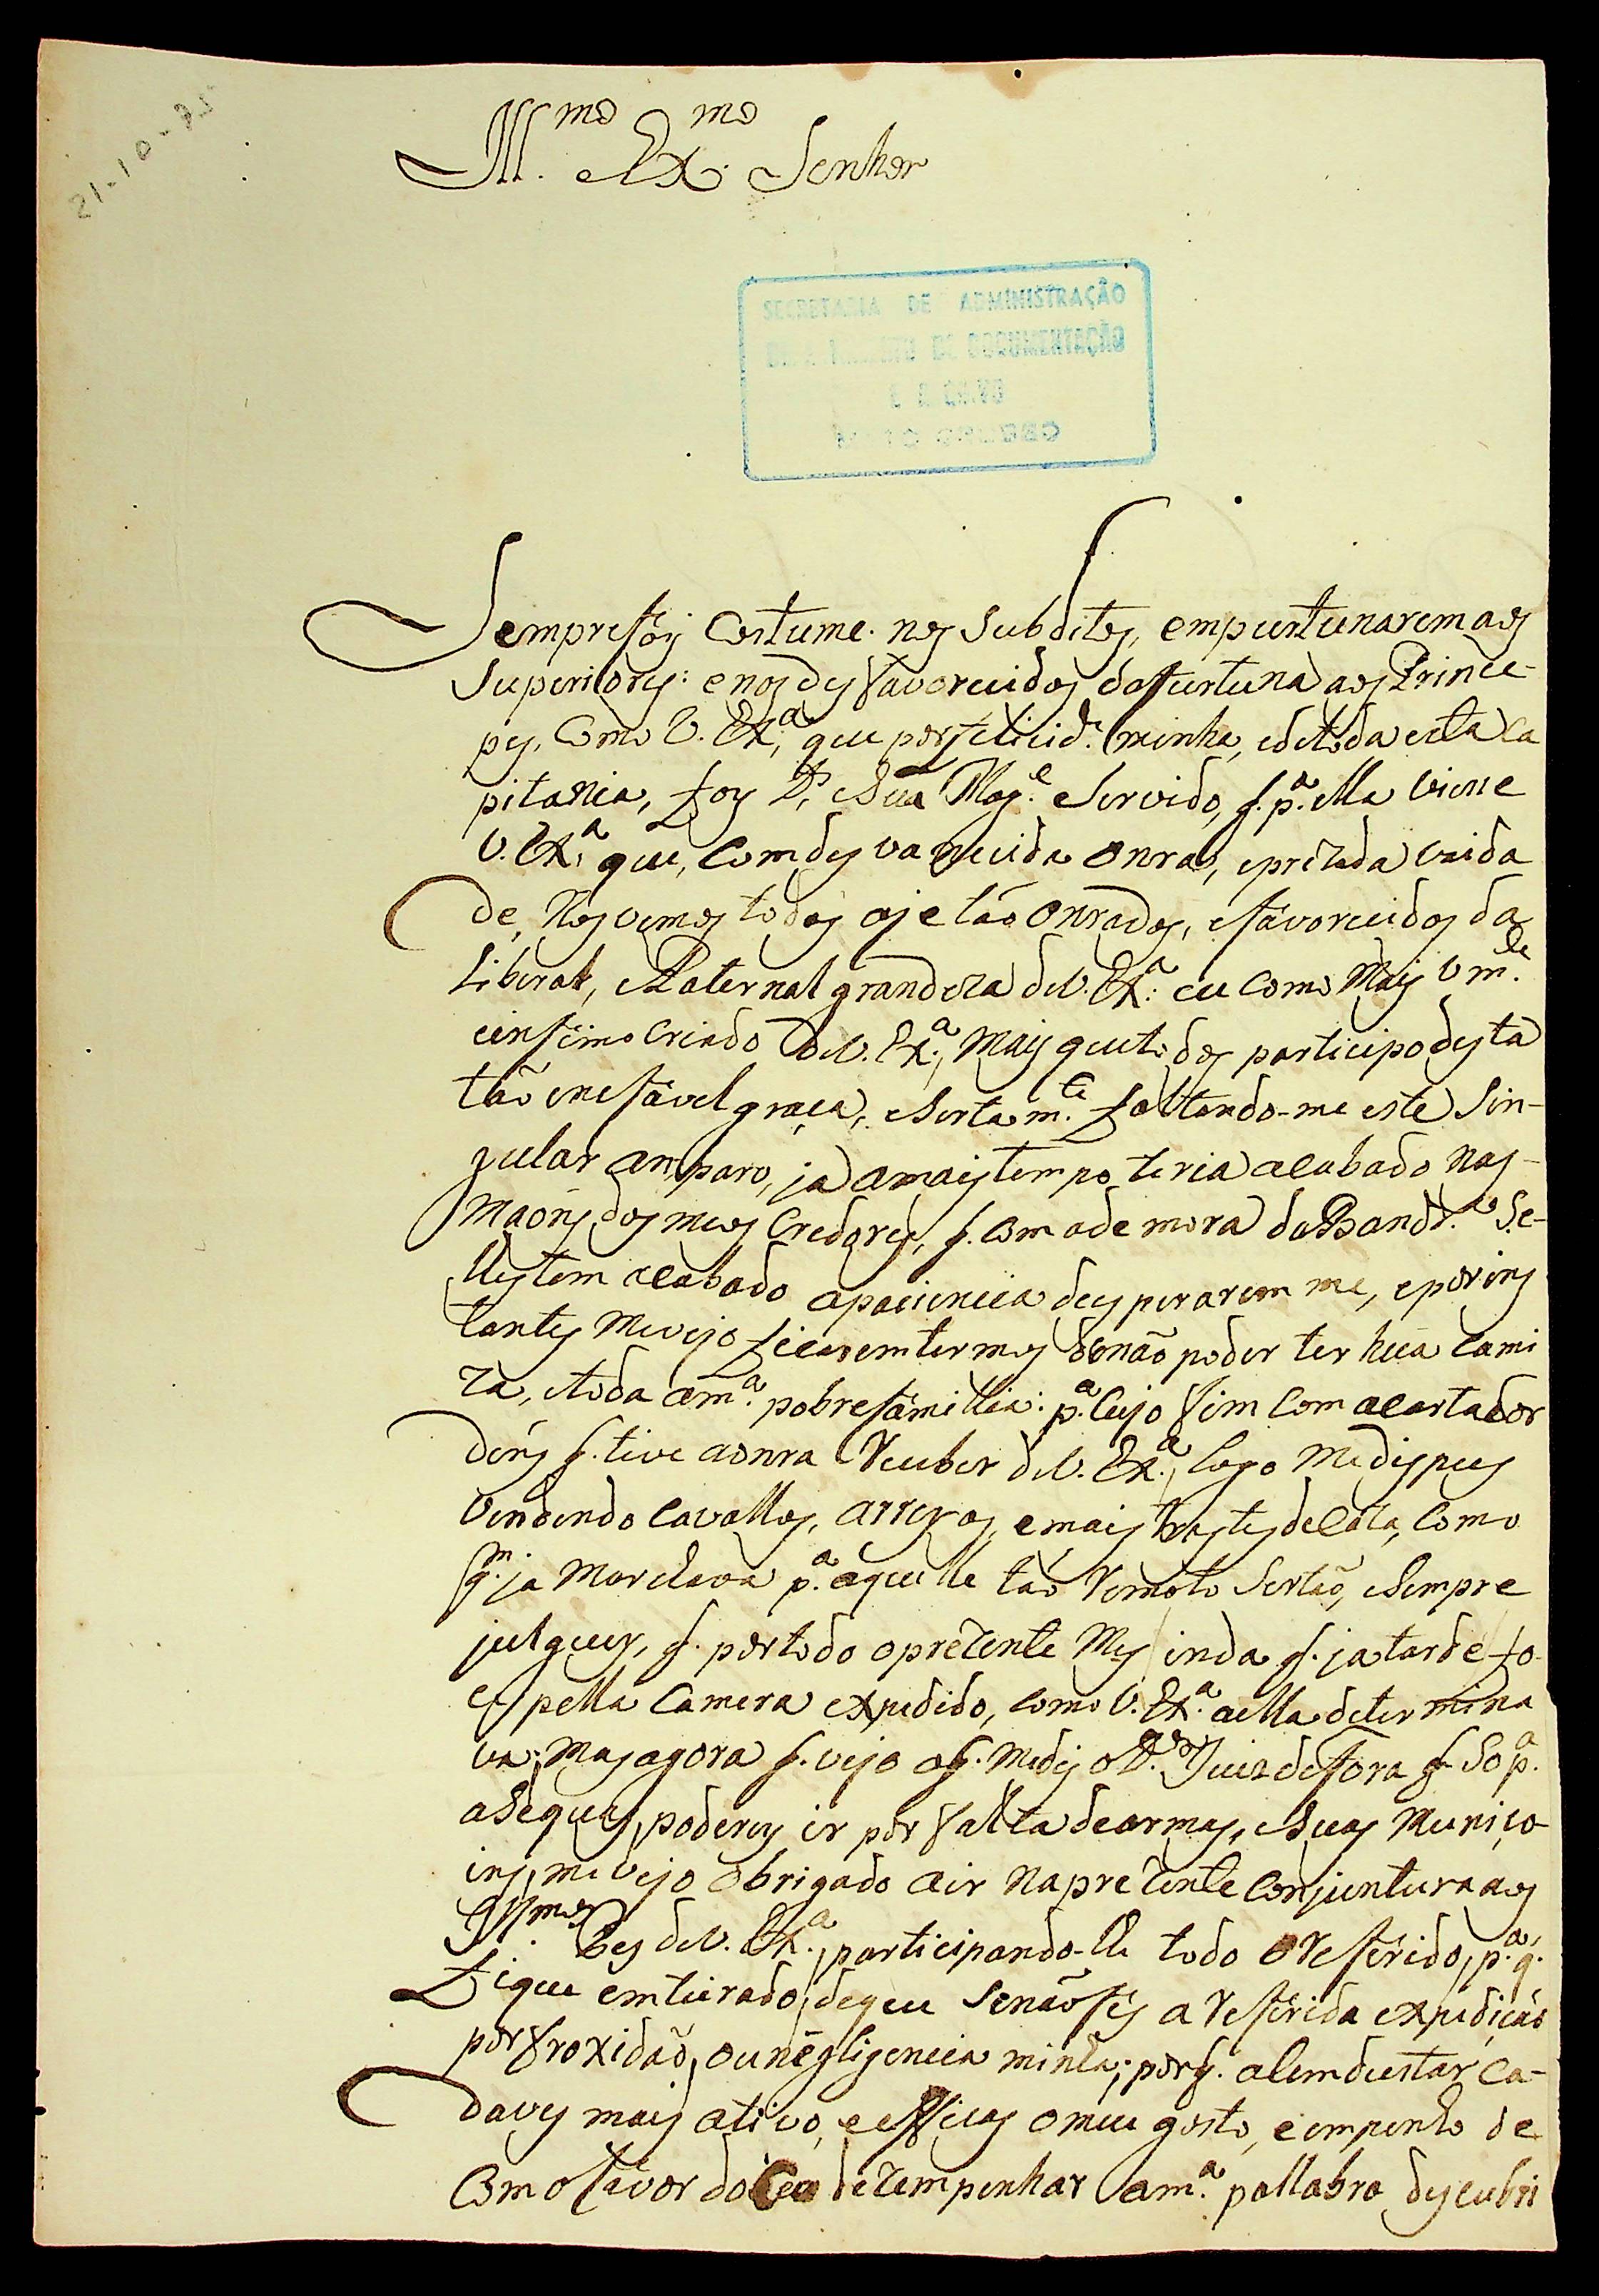 21-10-95
Ill.mo Ex.mo Senhor
SECRETARIA DE ADMINISTRAÇÃO
DE DOCUMENTAÇÃO
E
Sempre foy Costume nos Subditos, empurtunarem aos
Superiores: e nos desfavorecidos da furtuna aos Prince-
pes, Como V. Ex.a, que por felicid.e minha, e de toda esta Ca
pitania, foy D.s e Sua Mag.e Servido, q. p.a ella viene
V. Ex.a que, Com desvanecida Onra, e prezada vaida
de, Nos vemos todos oje tão Onrados, e favorecidos da
Liberal, e Paternal grandeza de V. Ex.a: eu como Mais Vm.de
e infimo Criado de V. Ex.a, Mais que todos participo desta
tão inefavel graça, e Serta m.te faltando-me este Sin-
gular amparo, ja a mais tempo teria acabado nas
Maons dos meus Credores, q. Com a demora da Band.ra Se
lhes tem acabado a paciencia de esperarem me, e por ins
tantes Me vejo ficar em termos de não poder ter hũa Cami
za, e toda a m.a pobre familia: p.a Cujo fim Com acertada or
dens q. tive a onra Receber de V. Ex.a, logo Me dispus
Vendendo Cavallos, arreyos, e mais trastes de Caza, Como
q.m ja Marchava p.a aquelle tão Remoto Sertão, e Sempre
julguey, q. por todo o prezente Mes inda q. ja tarde fo
e pella Camera expedido, Como V. Ex.a a ella determina
va: Mas agora q. vejo o q. Me diz o D.or Juiz de fora q. So p.a
a Seques, poderey ir por falta de armas, e Suas Muniço-
ins, me vejo Obrigado a ir na prezente Conjuntura aos
Ill.mos Pes de V. Ex.a, participando-lhe todo o Referido, p.a q.
fique emteirado, de que Se não fes a Referida expedição
por froxidão, ou negligencia minha; porq. alem de estar Ca-
da ves mais ativo, e efficas o meu gosto, e empenho de
Com o favor do Ceo dezempenhar a m.a pallabra, descubri